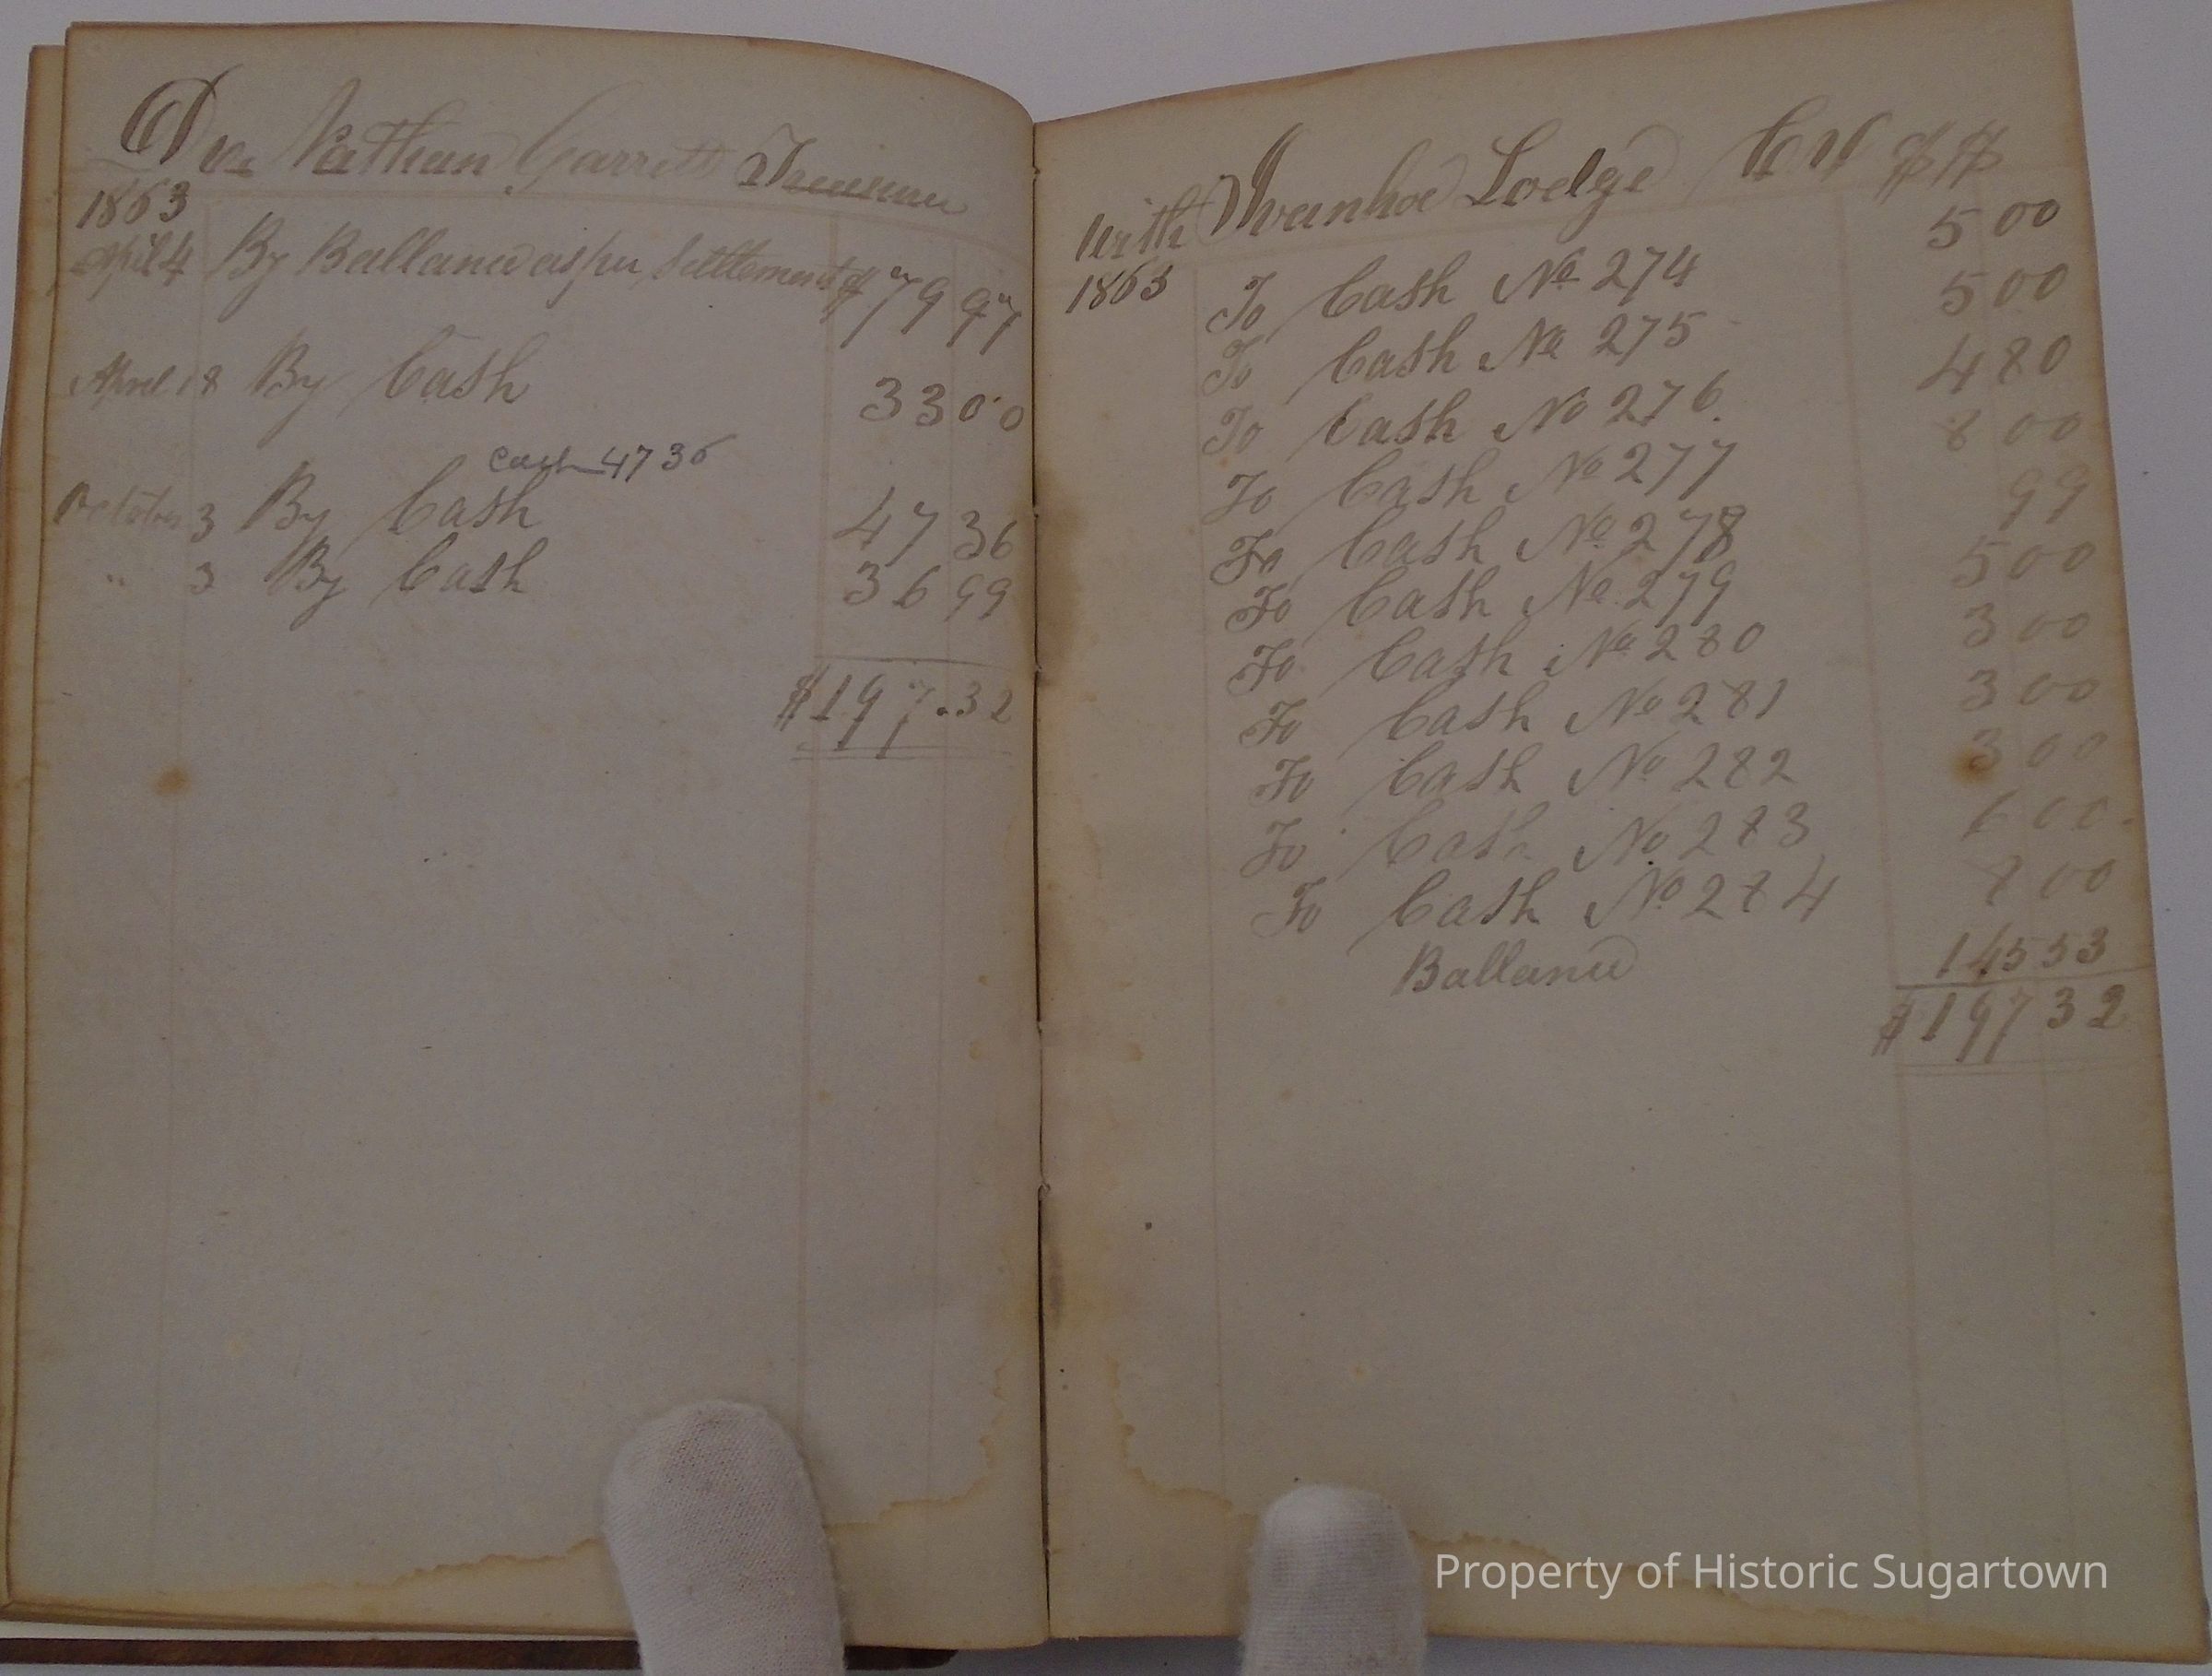 Dr Nathan Garrett Treasurer
1863
April 4 By Ballance as per settlement $79 97
April 18 By Cash 33 00
Cash 47 36
October 3 By Cash 47 36
" 3 By Cash 36 99
$197.32
with Ivanhoe Lodge Cr $ $
1863 To Cash No 274 5 00
To Cash No 275 5 00
To Cash No 276 4 80
To Cash No 277 8 00
To Cash No 278 99
To Cash No 279 5 00
To Cash No 280 3 00
To Cash No 281 3 00
To Cash No 282 3 00
To Cash No 283 6 00
To Cash No 284 8 00
Ballance 145 53
$197 32
Property of Historic Sugartown